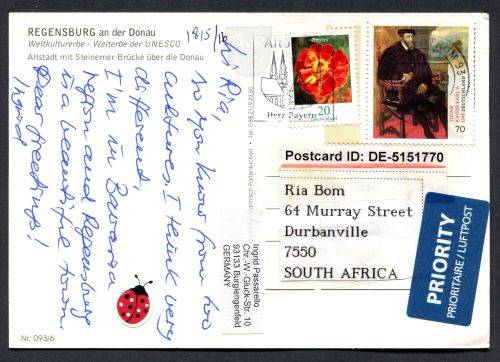 REGENSBURG an der Donau
Weltkulturerbe - Welterbe der UNESCO
Altstadt mit Steinerner Brücke über die Donau
18/5/16
Hi Ria,
now from two
cultures, I think very
different,
I'm in Bavaria
region and Regensburg
is a beautiful town.
Best greetings!
Ingrid
Nr. 093/6
Ingrid Passarello
Chr.-W.-Gluck-Str. 10
93133 Burglengenfeld
GERMANY
Herz Bayern
20
Deutschland
TIZIAN
KAISER KARL V.
1548
DEUTSCHLAND
70
93
Postcard ID: DE-5151770
Ria Bom
64 Murray Street
Durbanville
7550
SOUTH AFRICA
PRIORITY
PRIORITAIRE / LUFTPOST